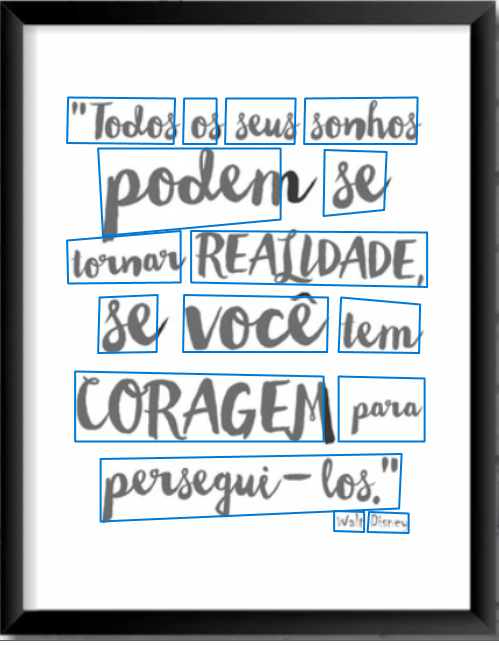 "Todos os seus sonhos
podem se
tornar REALIDADE,
se você tem
CORAGEM para
persegui-los."
Walt Disney